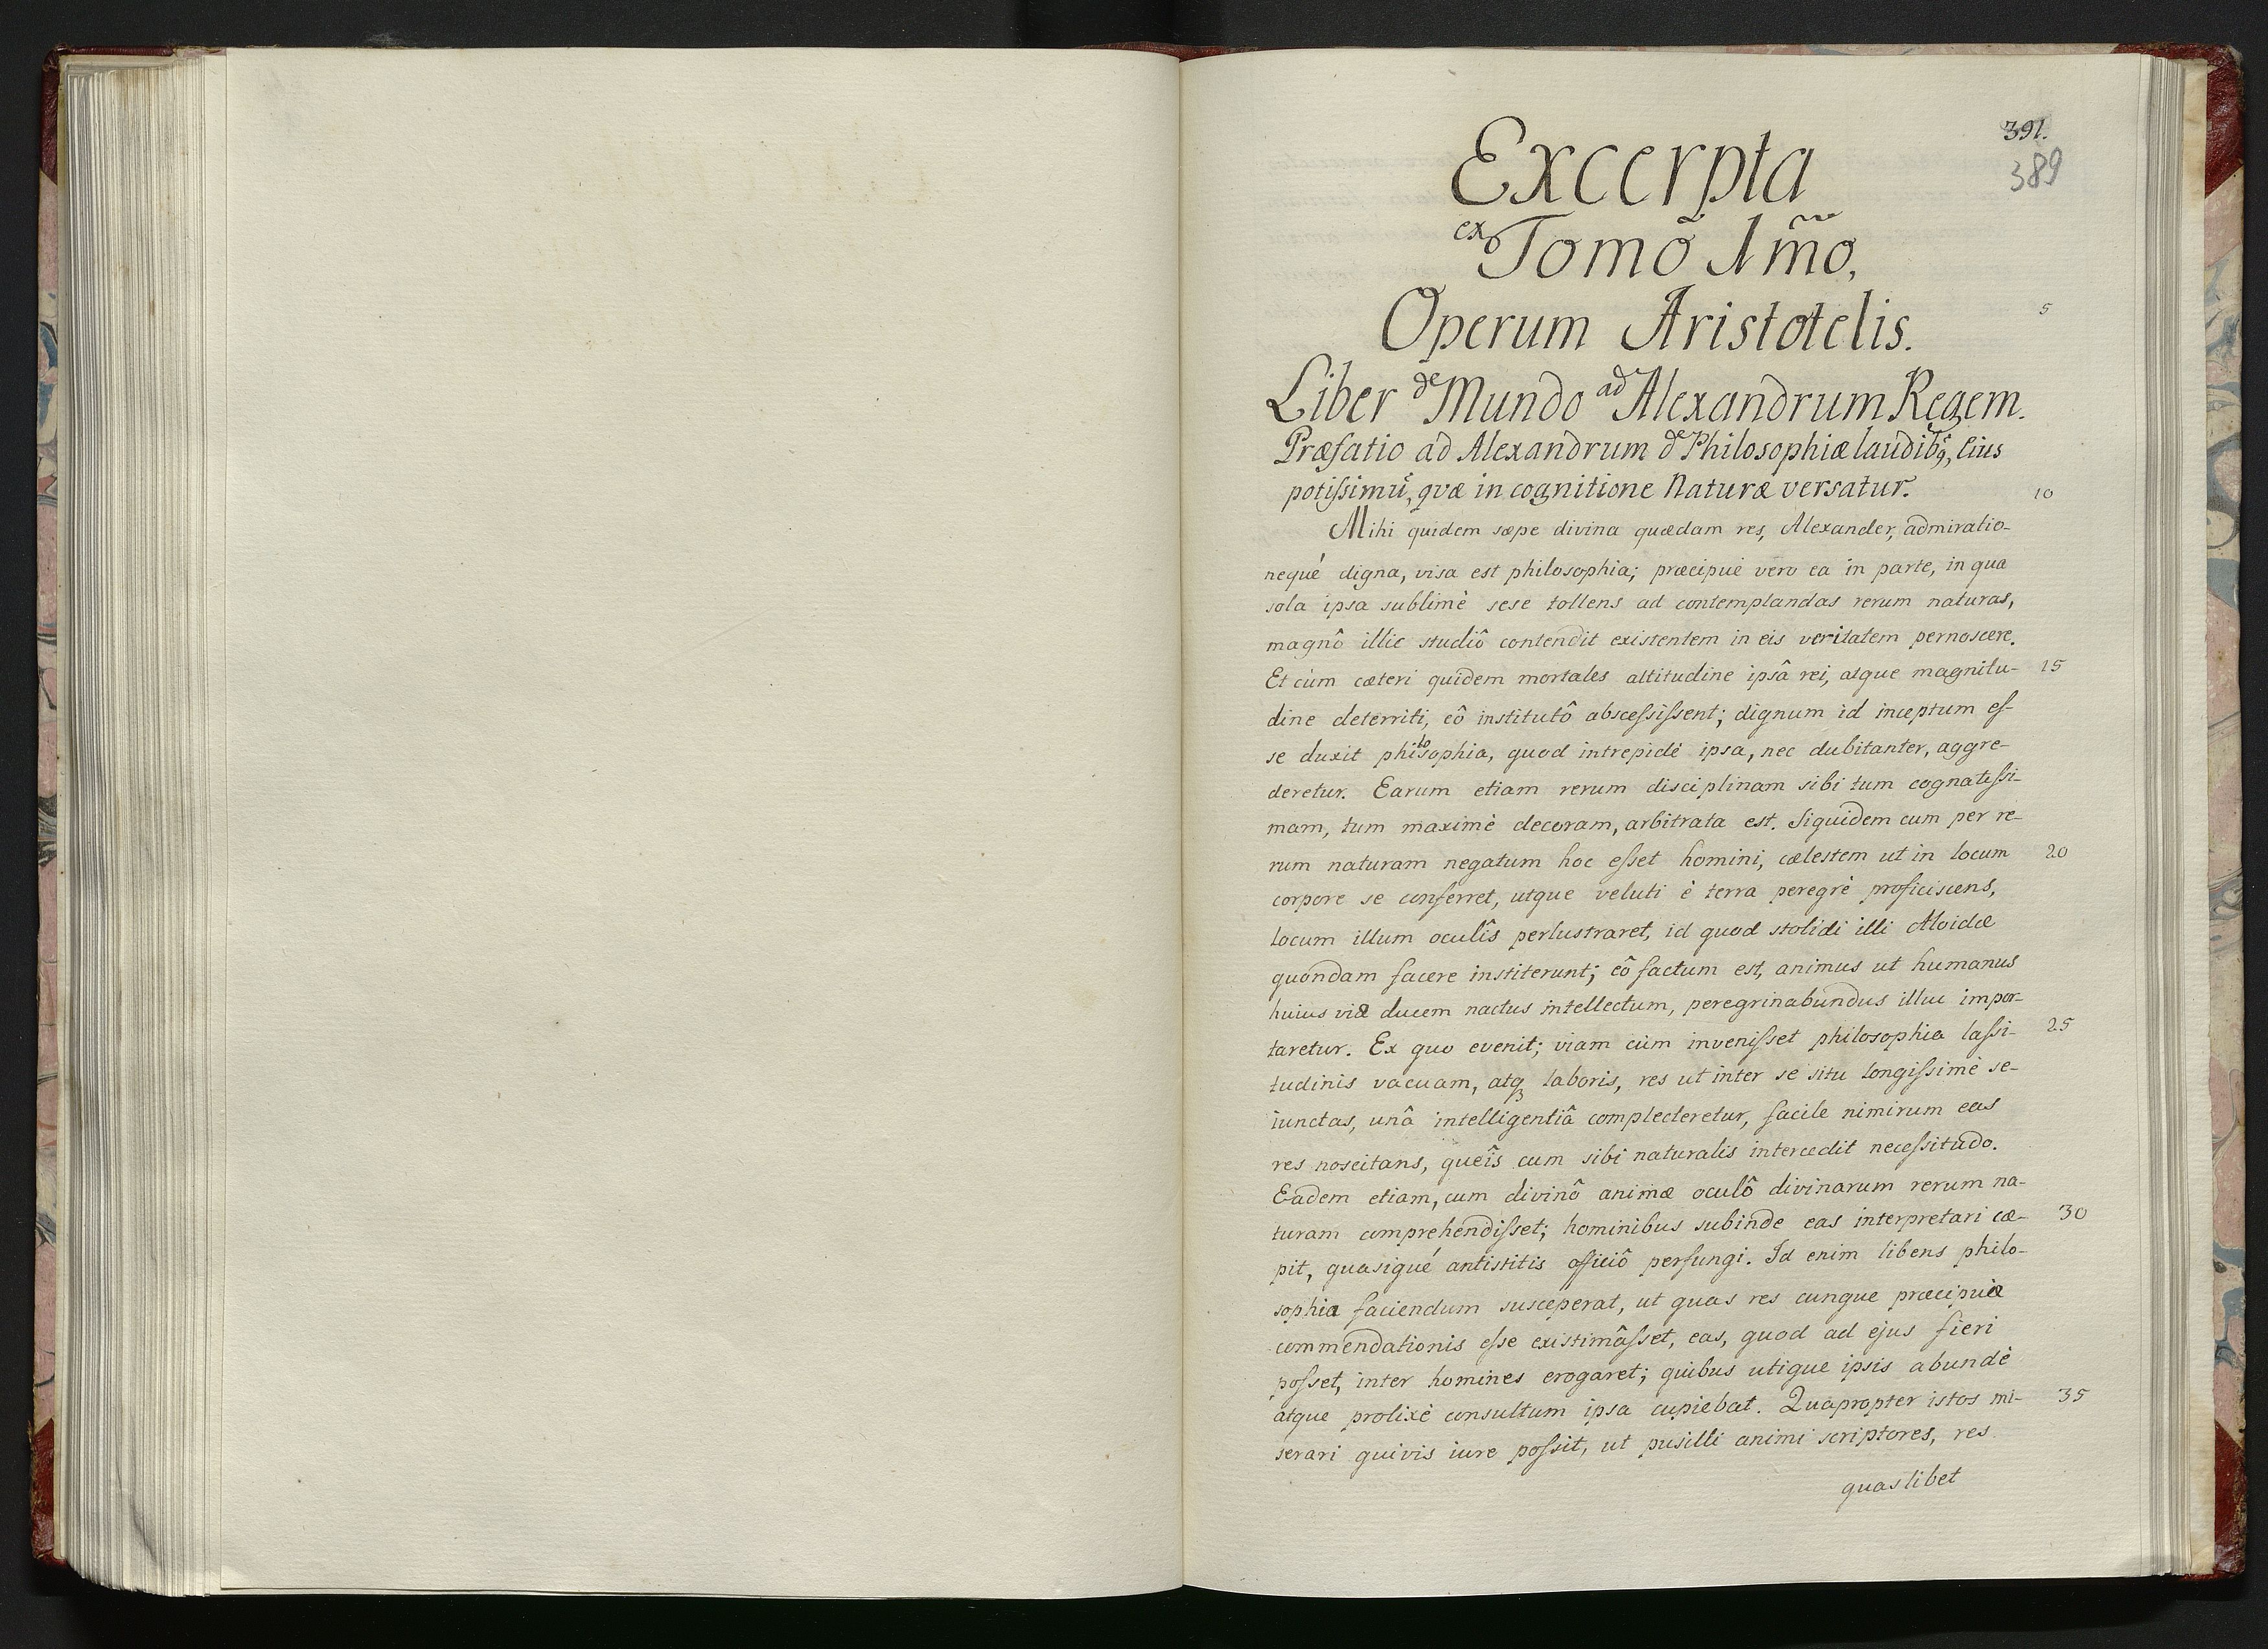 391.
389
Excerpta
ex Tomô I mô,
Operum Aristotelis. 5
Liber de Mundo ad Alexandrum Regem.
Præfatio ad Alexandrum de Philosophiæ laudibꝰ, Eius
potiſsimũ, qvæ in cognitione Naturæ versatur. 10
Mihi quidem sæpe divina quædam res, Alexander, admiratio-
nequé digna, visa est philosophia; præcipuè vero ea in parte, in qua
sola ipsa sublimè sese tollens ad contemplandas rerum naturas,
magnô illic studiô contendit existentem in eis veritatem pernoscere.
Et cùm cæteri quidem mortales altitudine ipsâ rei, atque magnitu- 15
dine deterriti, eô institutô absceſsiſsent; dignum id inceptum eſ-
se duxit philosophia, quod intrepidè ipsa, nec dubitanter, aggre-
deretur. Earum etiam rerum disciplinam sibi tum cognatiſsi-
mam, tum maximè decoram, arbitrata est. Siquidem cum per re-
rum naturam negatum hoc eſset homini, cælestem ut in locum 20
corpore se conferret, utque veluti è terra peregrè proficiscens,
locum illum oculîs perlustraret, id quod stolidi illi Aloidæ
quondam facere institerunt; eô factum est, animus ut humanus
huius viæ ducem nactus intellectum, peregrinabundus illuc impor-
taretur. Ex quo evenit; viam cùm inveniſset philosophia laſsi- 25
tudinis vacuam, atqꝫ laboris, res ut inter se situ longiſsimè se-
iunctas, unâ intelligentiâ complecteretur, facile nimirum eas
res noscitans, queîs cum sibi naturalis intercedit neceſsitudo.
Eadem etiam, cum divinô animæ oculô divinarum rerum na-
turam comprehendiſset; hominibus subinde eas interpretari cæ- 30
pit, quasiqué antistitis officiô perfungi. Id enim libens philo-
sophia faciendum susceperat, ut quas res cunque præcipuæ
commendationis eſse existimâſset, eas, quod ad ejus fieri
poſset, inter homines erogaret; quibus utique ipsis abundè
atque prolixè consultum ipsa cupiebat. Quapropter istos mi- 35
serari quivis iure poſsit, ut pusilli animi scriptores, res
quaslibet